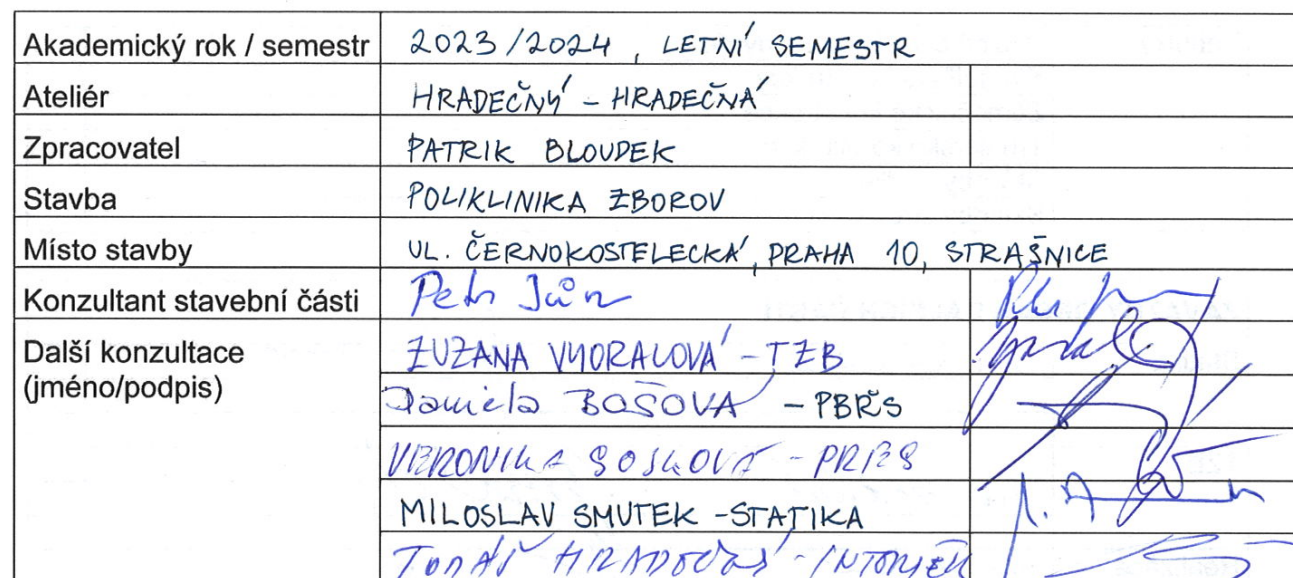 Akademický rok / semestr 2023/2024, LETNÍ SEMESTR
Ateliér HRADEČNÝ - HRADEČNÁ
Zpracovatel PATRIK BLOUDEK
Stavba POLIKLINIKA ZBOROV
Místo stavby UL. ČERNOKOSTELECKÁ, PRAHA 10, STRAŠNICE
Konzultant stavební části Petr Jůn
Další konzultace ZUZANA VYORALOVÁ - TZB
(jméno/podpis) Daniela BOŠOVÁ - PBŘS
VERONIKA SOJKOVÁ - PRES
MILOSLAV SMUTEK - STATIKA
TOMÁŠ HRADEČNÝ - INTERIÉR